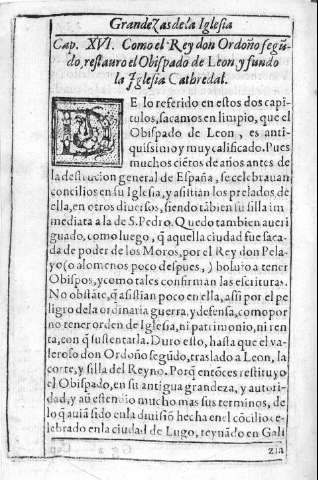 Grandezas de la Iglesia
Cap. XVI. Como el Rey don Ordoño segũ-
do, restauro el Obispado de Leon y fundo
la Iglesia Cathredal.
DE lo referido en estos dos capi-
tulos, sacamos en limpio, que el
Obispado de Leon, es anti-
quissimo y muy calificado. Pues
muchos ciẽtos de años antes de
la destruciõn general de España, se celebrauan
concilios en su Iglesia, y asistian los prelados de
ella, en otros diuersos, siendo tãbien su silla im-
mediata a la de S. Pedro. Quedo tambien aueri
guado, como luego, q̃ aquella ciudad fue saca-
da de poder de los Moros, por el Rey don Pela-
yo (o alomenos poco despues,) boluio a tener
Obispos, y como tales confirman las escrituras.
No obstãte, q̃ asistian poco en ella, assi por el pe-
ligro de la ordinaria guerra, y defensa, como por
no tener orden de Iglesia, ni patrimonio, ni ren
ta, con q̃ sustentarla. Duro esto, hasta que el va-
leroso don Ordoño segũdo, traslado a Leon, la
corte, y silla del Reyno. Porq̃ entõces restituyo
el Obispado, en su antigua grandeza, y autori-
dad, y aũ estendio mucho mas sus terminos, de
lo q̃ auia sido en la diuisiõ hecha en el cõcilio ce-
lebrado en la ciudad de Lugo, reynãdo en Gali
zia